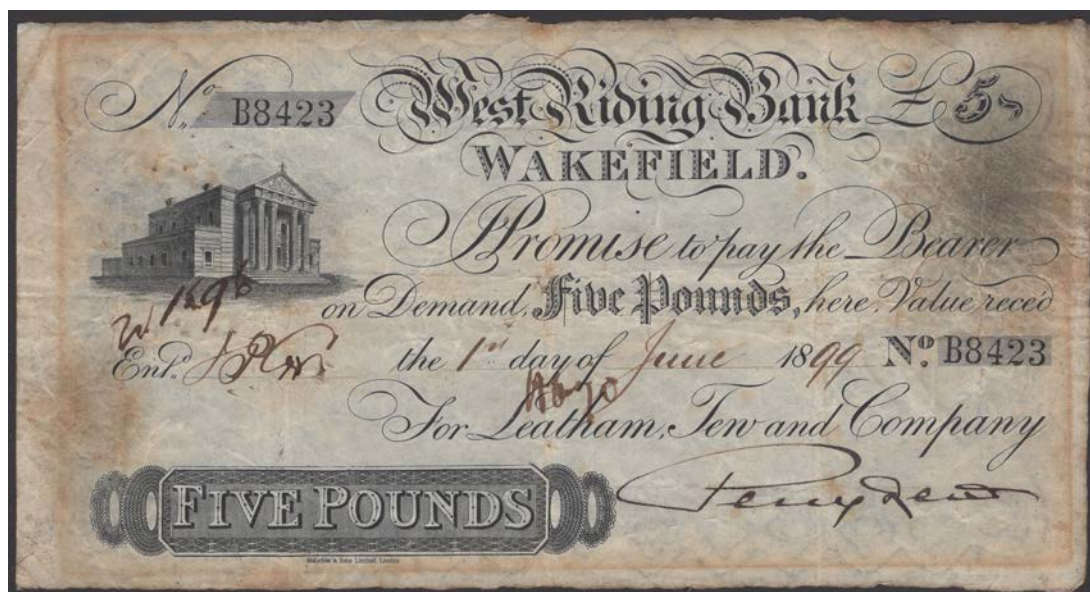 No. B8423 West Riding Bank £5
WAKEFIELD.
I Promise to pay the Bearer
on Demand, Five Pounds, here. Value reced
Entd. the 1st day of June 1899 No. B8423
For Leatham, Tew and Company
FIVE POUNDS
Waterlow & Sons Limited, London